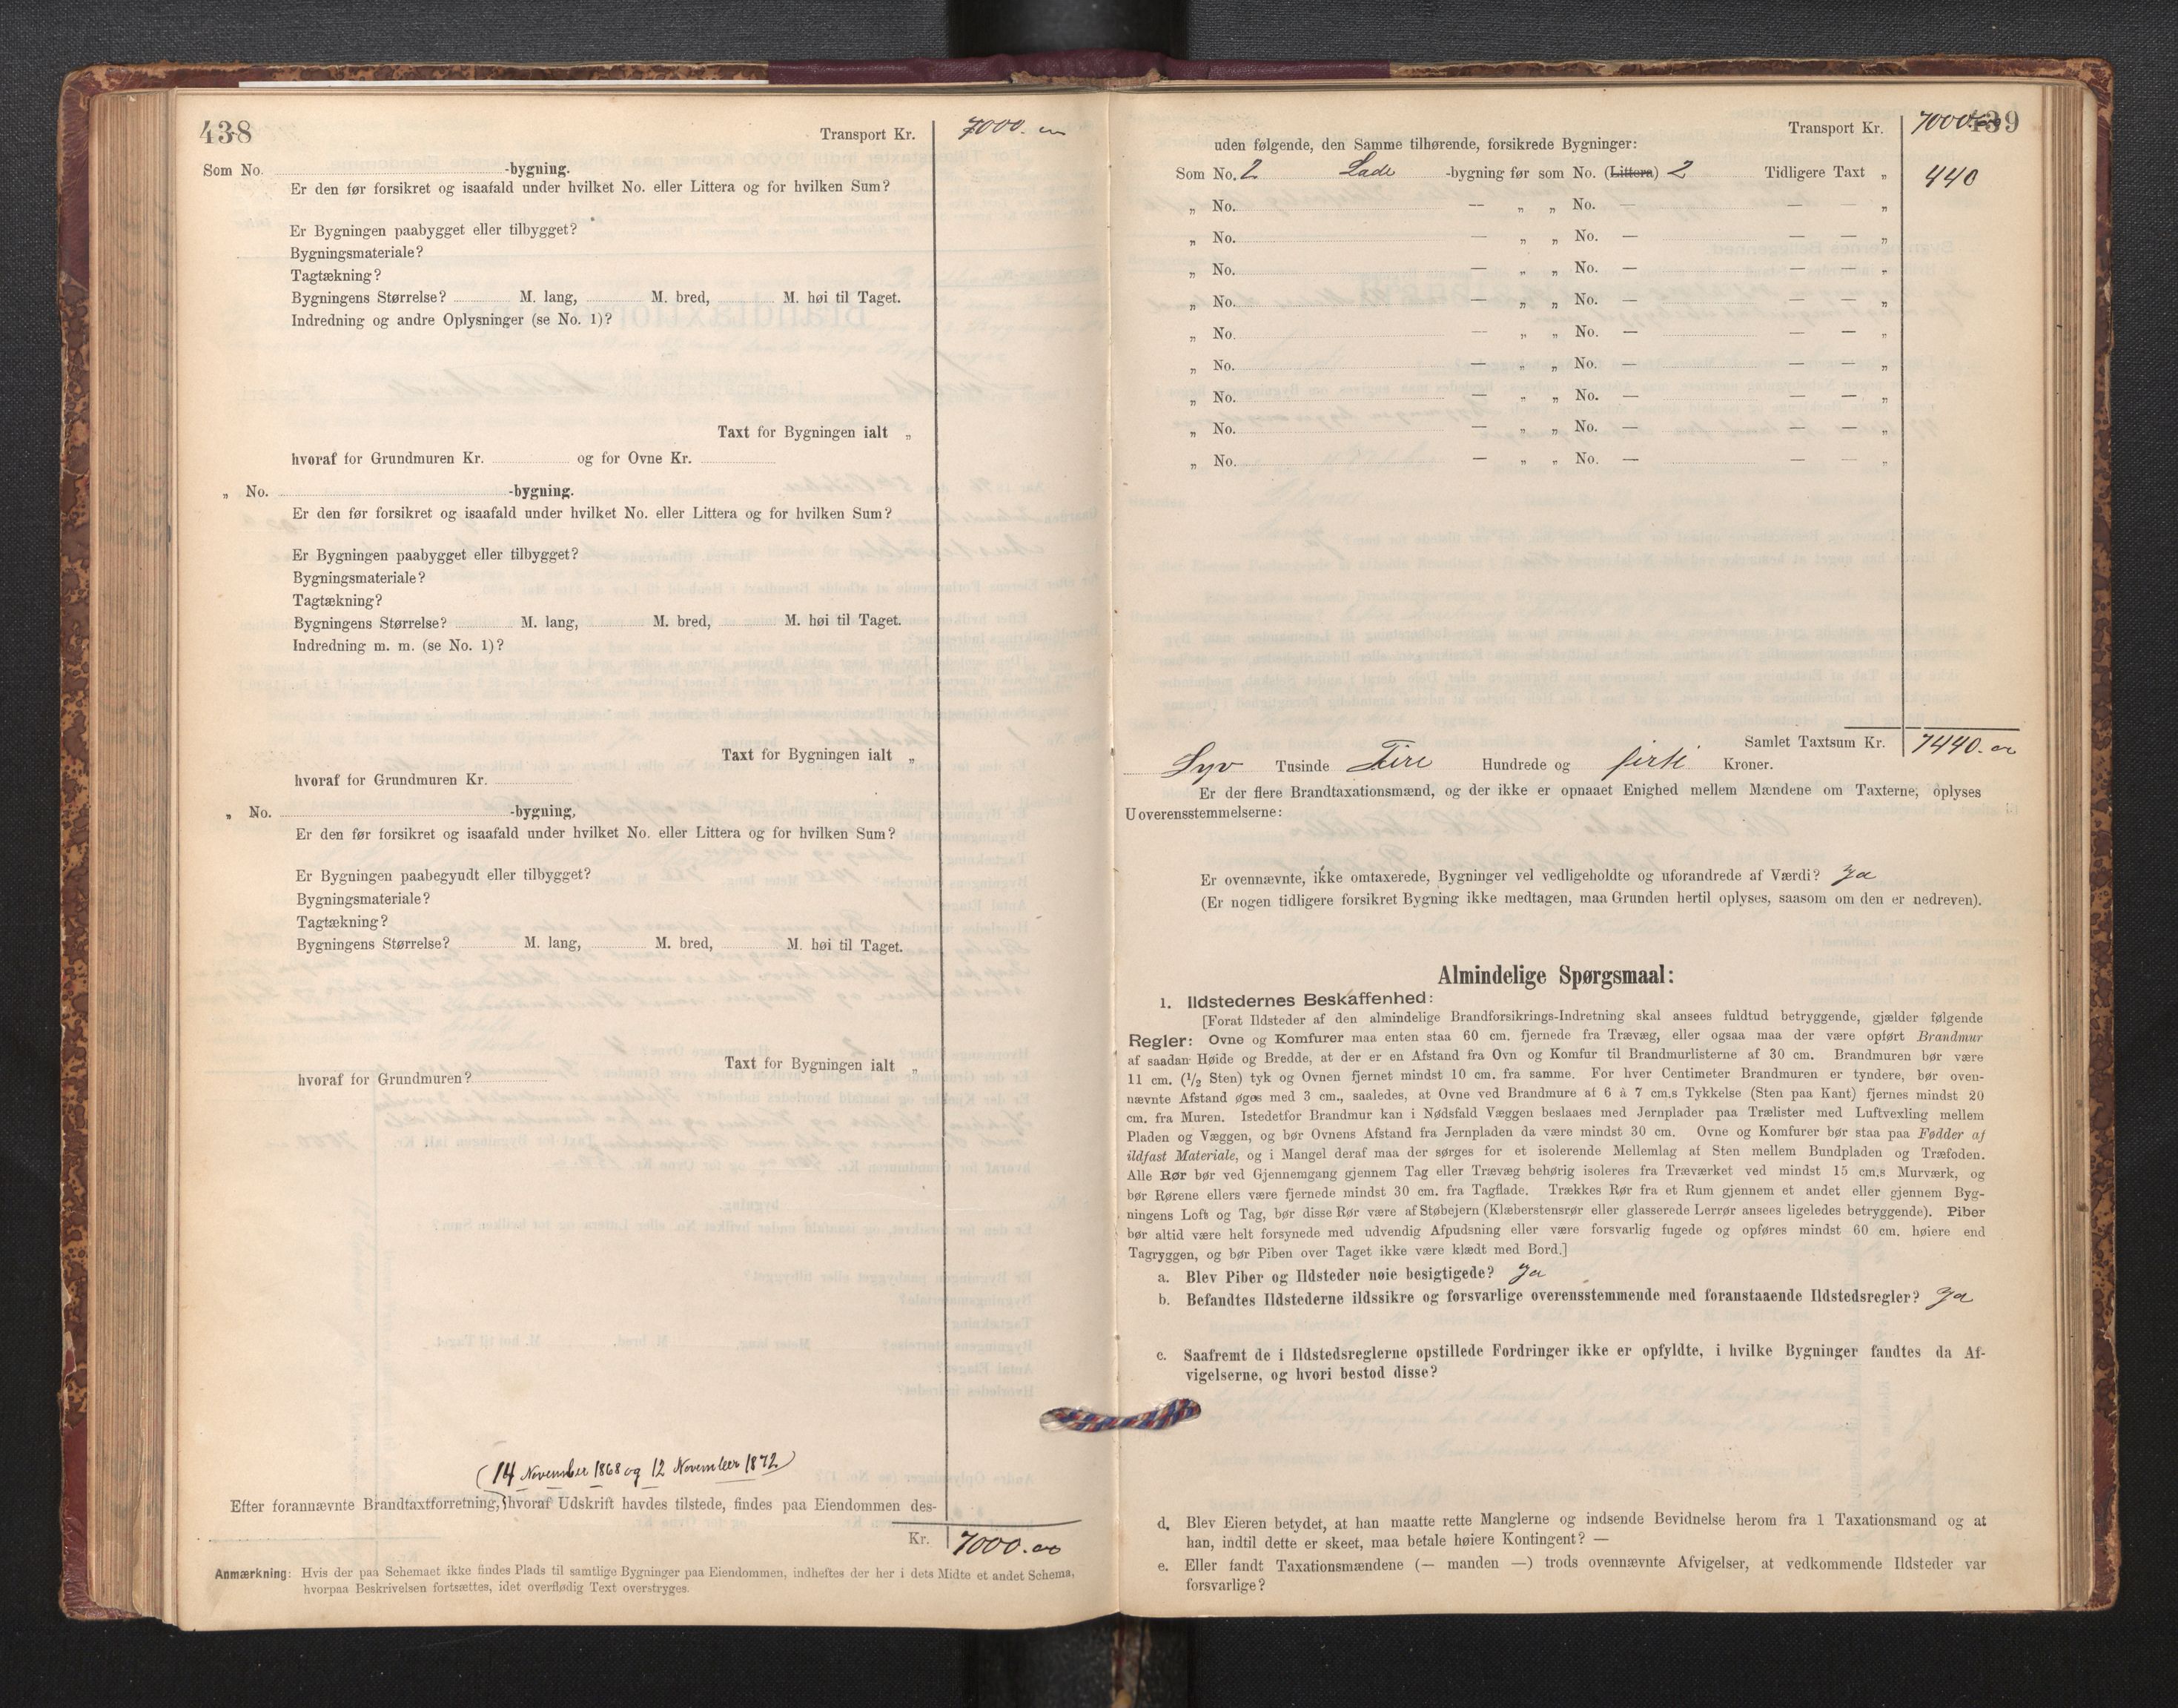 438
Transport Kr. 7000.
Som No. -bygning.
Er den før forsikret og isaafald under hvilket No. eller Littera og for hvilken Sum?
Er Bygningen paabygget eller tilbygget?
Bygningsmateriale?
Tagtækning?
Bygningens Størrelse? M. lang, M. bred, M. høi til Taget.
Indredning og andre Oplysninger (se No. 1)?
Taxt for Bygningen ialt „
hvoraf for Grundmuren Kr. og for Ovne Kr.
„ No. -bygning.
Er den før forsikret og isaafald under hvilket No. eller Littera og for hvilken Sum?
Er Bygningen paabygget eller tilbygget?
Bygningsmateriale?
Tagtækning?
Bygningens Størrelse? M. lang, M. bred, M. høi til Taget.
Indredning m. m. (se No. 1)?
Taxt for Bygningen ialt „
hvoraf for Grundmuren Kr.
„ No. -bygning,
Er den før forsikret og isaafald under hvilket No. eller Littera og for hvilken Sum?
Er Bygningen paabegyndt eller tilbygget?
Bygningsmateriale?
Tagtækning?
Bygningens Størrelse? M. lang, M. bred, M. høi til Taget.
Taxt for Bygningen ialt „
hvoraf for Grundmuren?
(14 November 1868 og 12 November 1872)
Efter forannævnte Brandtaxtforretning, hvoraf Udskrift havdes tilstede, findes paa Eiendommen des-
Kr. 7000.
Anmærkning: Hvis der paa Schemaet ikke findes Plads til samtlige Bygninger paa Eiendommen, indheftes der her i dets Midte et andet Schema,
hvorpaa Beskrivelsen fortsættes, idet overflødig Text overstryges.
439
Transport Kr. 7000.
uden følgende, den Samme tilhørende, forsikrede Bygninger:
Som No. 2 Lade -bygning før som No. (Littera) 2 Tidligere Taxt „ 440
„ No. — „ „ No. — — — „
„ No. — „ „ No. — — — „
„ No. — „ „ No. — — — „
„ No. — „ „ No. — — — „
„ No. — „ „ No. — — — „
„ No. — „ „ No. — — — „
„ No. — „ „ No. — — — „
„ No. — „ „ No. — — — „
„ No. — „ „ No. — — — „
Samlet Taxtsum Kr. 7440.
Syv Tusinde Fire Hundrede og firti Kroner.
Er der flere Brandtaxationsmænd, og der ikke er opnaaet Enighed mellem Mændene om Taxterne, oplyses
Uoverensstemmelserne:
Er ovennævnte, ikke omtaxerede, Bygninger vel vedligeholdte og uforandrede af Værdi? Ja
(Er nogen tidligere forsikret Bygning ikke medtagen, maa Grunden hertil oplyses, saasom om den er nedreven).
Almindelige Spørgsmaal:
1. Ildstedernes Beskaffenhed:
[Forat Ildsteder af den almindelige Brandforsikrings-Indretning skal ansees fuldtud betryggende, gjælder følgende
Regler: Ovne og Komfurer maa enten staa 60 cm. fjernede fra Trævæg, eller ogsaa maa der være opført Brandmur
af saadan Høide og Bredde, at der er en Afstand fra Ovn og Komfur til Brandmurlisterne af 30 cm. Brandmuren bør være
11 cm. (1/2 Sten) tyk og Ovnen fjernet mindst 10 cm. fra samme. For hver Centimeter Brandmuren er tyndere, bør oven-
nævnte Afstand øges med 3 cm., saaledes, at Ovne ved Brandmure af 6 à 7 cm.s Tykkelse (Sten paa Kant) fjernes mindst 20
cm. fra Muren. Istedetfor Brandmur kan i Nødsfald Væggen beslaaes med Jernplader paa Trælister med Luftvexling mellem
Pladen og Væggen, og bør Ovnens Afstand fra Jernpladen da være mindst 30 cm. Ovne og Komfurer bør staa paa Fødder af
ildfast Materiale, og i Mangel deraf maa der sørges for et isolerende Mellemlag af Sten mellem Bundpladen og Træfoden.
Alle Rør bør ved Gjennemgang gjennem Tag eller Trævæg behørig isoleres fra Træværket ved mindst 15 cm.s Murværk, og
bør Rørene ellers være fjernede mindst 30 cm. fra Tagflade. Trækkes Rør fra et Rum gjennem et andet eller gjennem Byg-
ningens Loft og Tag, bør disse Rør være af Støbejern (Klæberstensrør eller glasserede Lerrør ansees ligeledes betryggende). Piber
bør altid være helt forsynede med udvendig Afpudsning eller være forsvarlig fugede og opføres mindst 60 cm. høiere end
Tagryggen, og bør Piben over Taget ikke være klædt med Bord.]
a. Blev Piber og Ildsteder nøie besigtigede? Ja
b. Befandtes Ildstederne ildssikre og forsvarlige overensstemmende med foranstaaende Ildstedsregler? Ja
c. Saafremt de i Ildstedsreglerne opstillede Fordringer ikke er opfyldte, i hvilke Bygninger fandtes da Af-
vigelserne, og hvori bestod disse?
d. Blev Eieren betydet, at han maatte rette Manglerne og indsende Bevidnelse herom fra 1 Taxationsmand og at
han, indtil dette er skeet, maa betale høiere Kontingent? —
e. Eller fandt Taxationsmændene (— manden —) trods ovennævnte Afvigelser, at vedkommende Ildsteder var
forsvarlige?